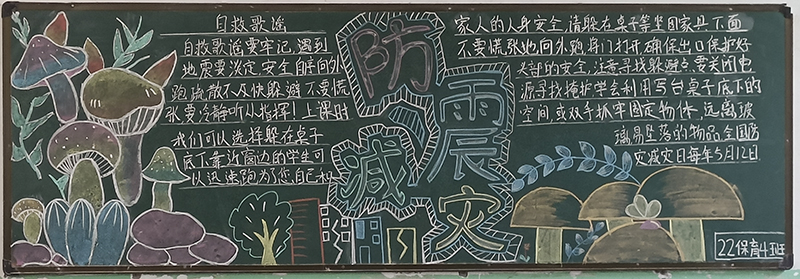 自救歌谣
自救歌谣要牢记,遇到
地震要淡定,安全自向外
跑,疏散不及快躲避 不要慌
张要冷静听从指挥!上课时
我们可以选择躲在桌子
底下靠近窗边的学生可
以迅速跑为了您自己和
防震
减灾
家人的人身安全,请躲在桌子等坚固家具下面
不要慌张地向外跑,将门打开确保出口保护好
头部的安全,注意寻找躲避点,要关闭电
源寻找掩护学会利用写台桌子底下的
空间或双手抓牢固定物体,远离玻
璃易坠落的物品全国防
灾减灾日每年5月12日
22保育4班